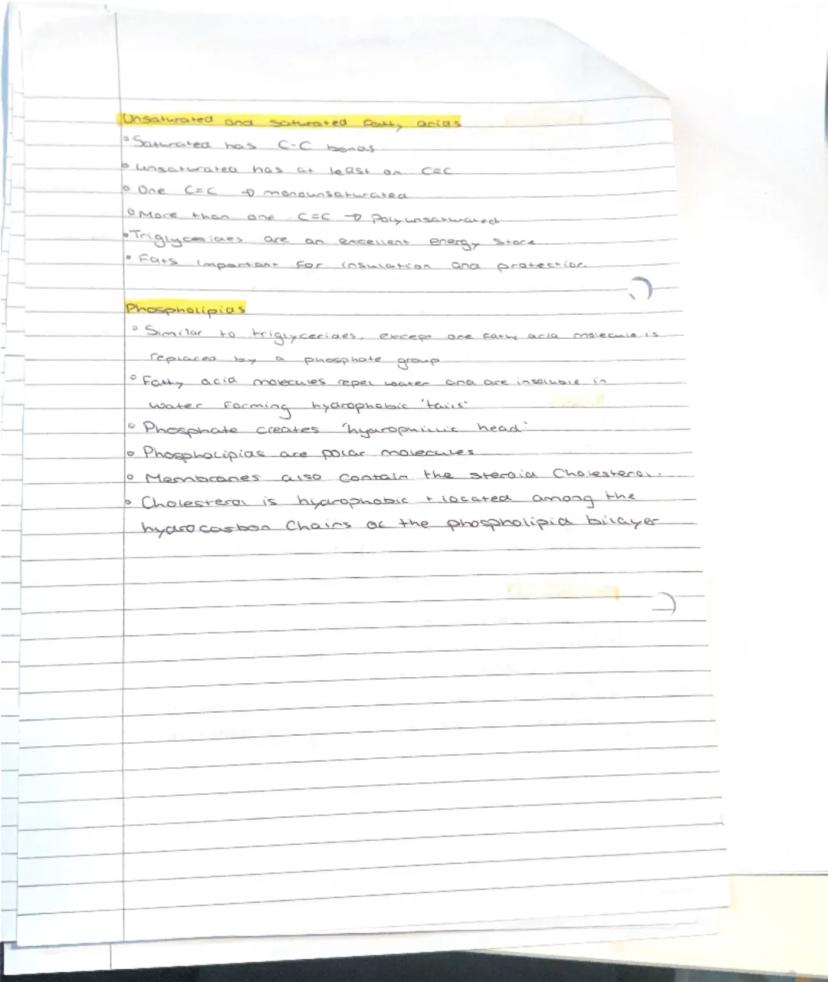 Unsaturated and saturated fatty acids
° Saturated has C-C bonds
° Unsaturated has at least on C=C
° One C=C → monounsaturated
° More than one C=C → Polyunsaturated
° Triglycerides are an excellent energy store
° Fats important for insulation and protection.
Phospholipids
° Similar to triglycerides, except one fatty acid molecule is
replaced by a phosphate group
° Fatty acid molecules repel water and are insoluble in
water forming hydrophobic 'tails'
° Phosphate creates 'hydrophillic head'
° Phospholipids are polar molecules
° Membranes also contain the steroid Cholesterol.
° Cholesterol is hydrophobic + located among the
hydrocarbon Chains of the phospholipid bilayer